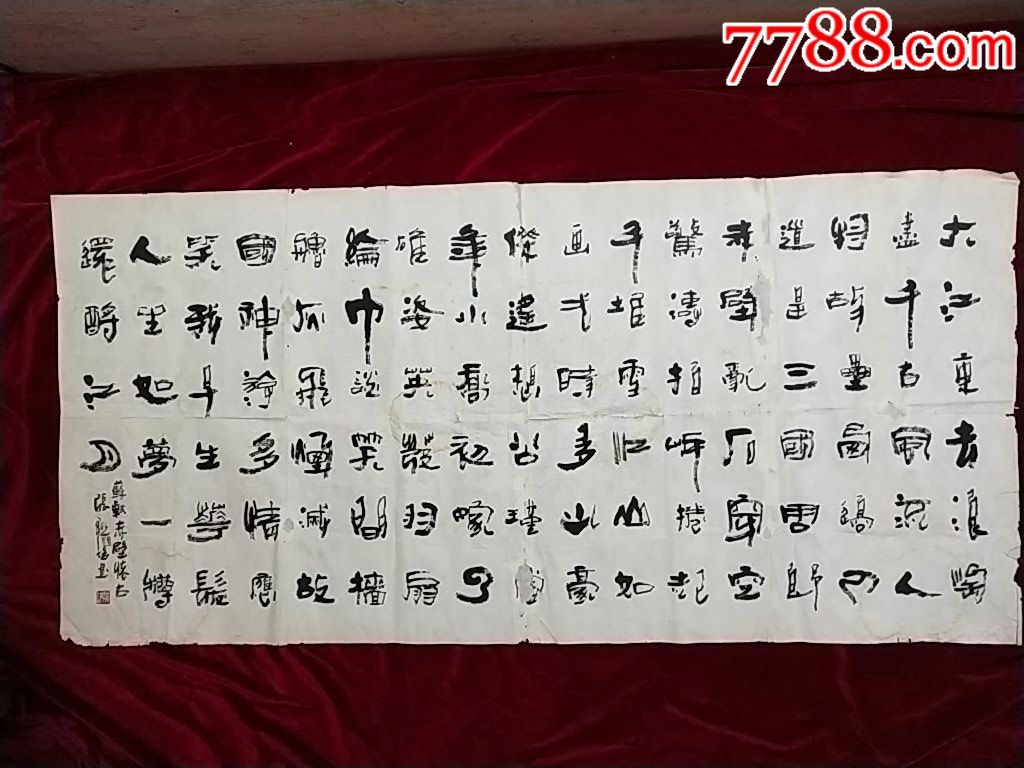 7788.com
大江東去浪淘
盡千古風流人
物故壘西邊人
道是三國周郎
赤壁亂石穿空
驚濤拍岸捲起
千堆雪江山如
画弌時多少豪
傑遙想公瑾當
年小喬初嫁了
雄姿英發羽扇
綸巾談笑間檣
艣灰飛煙滅故
國神游多情應
笑我早生華髮
人生如夢一樽
還酹江月
蘇軾赤壁懷古
張